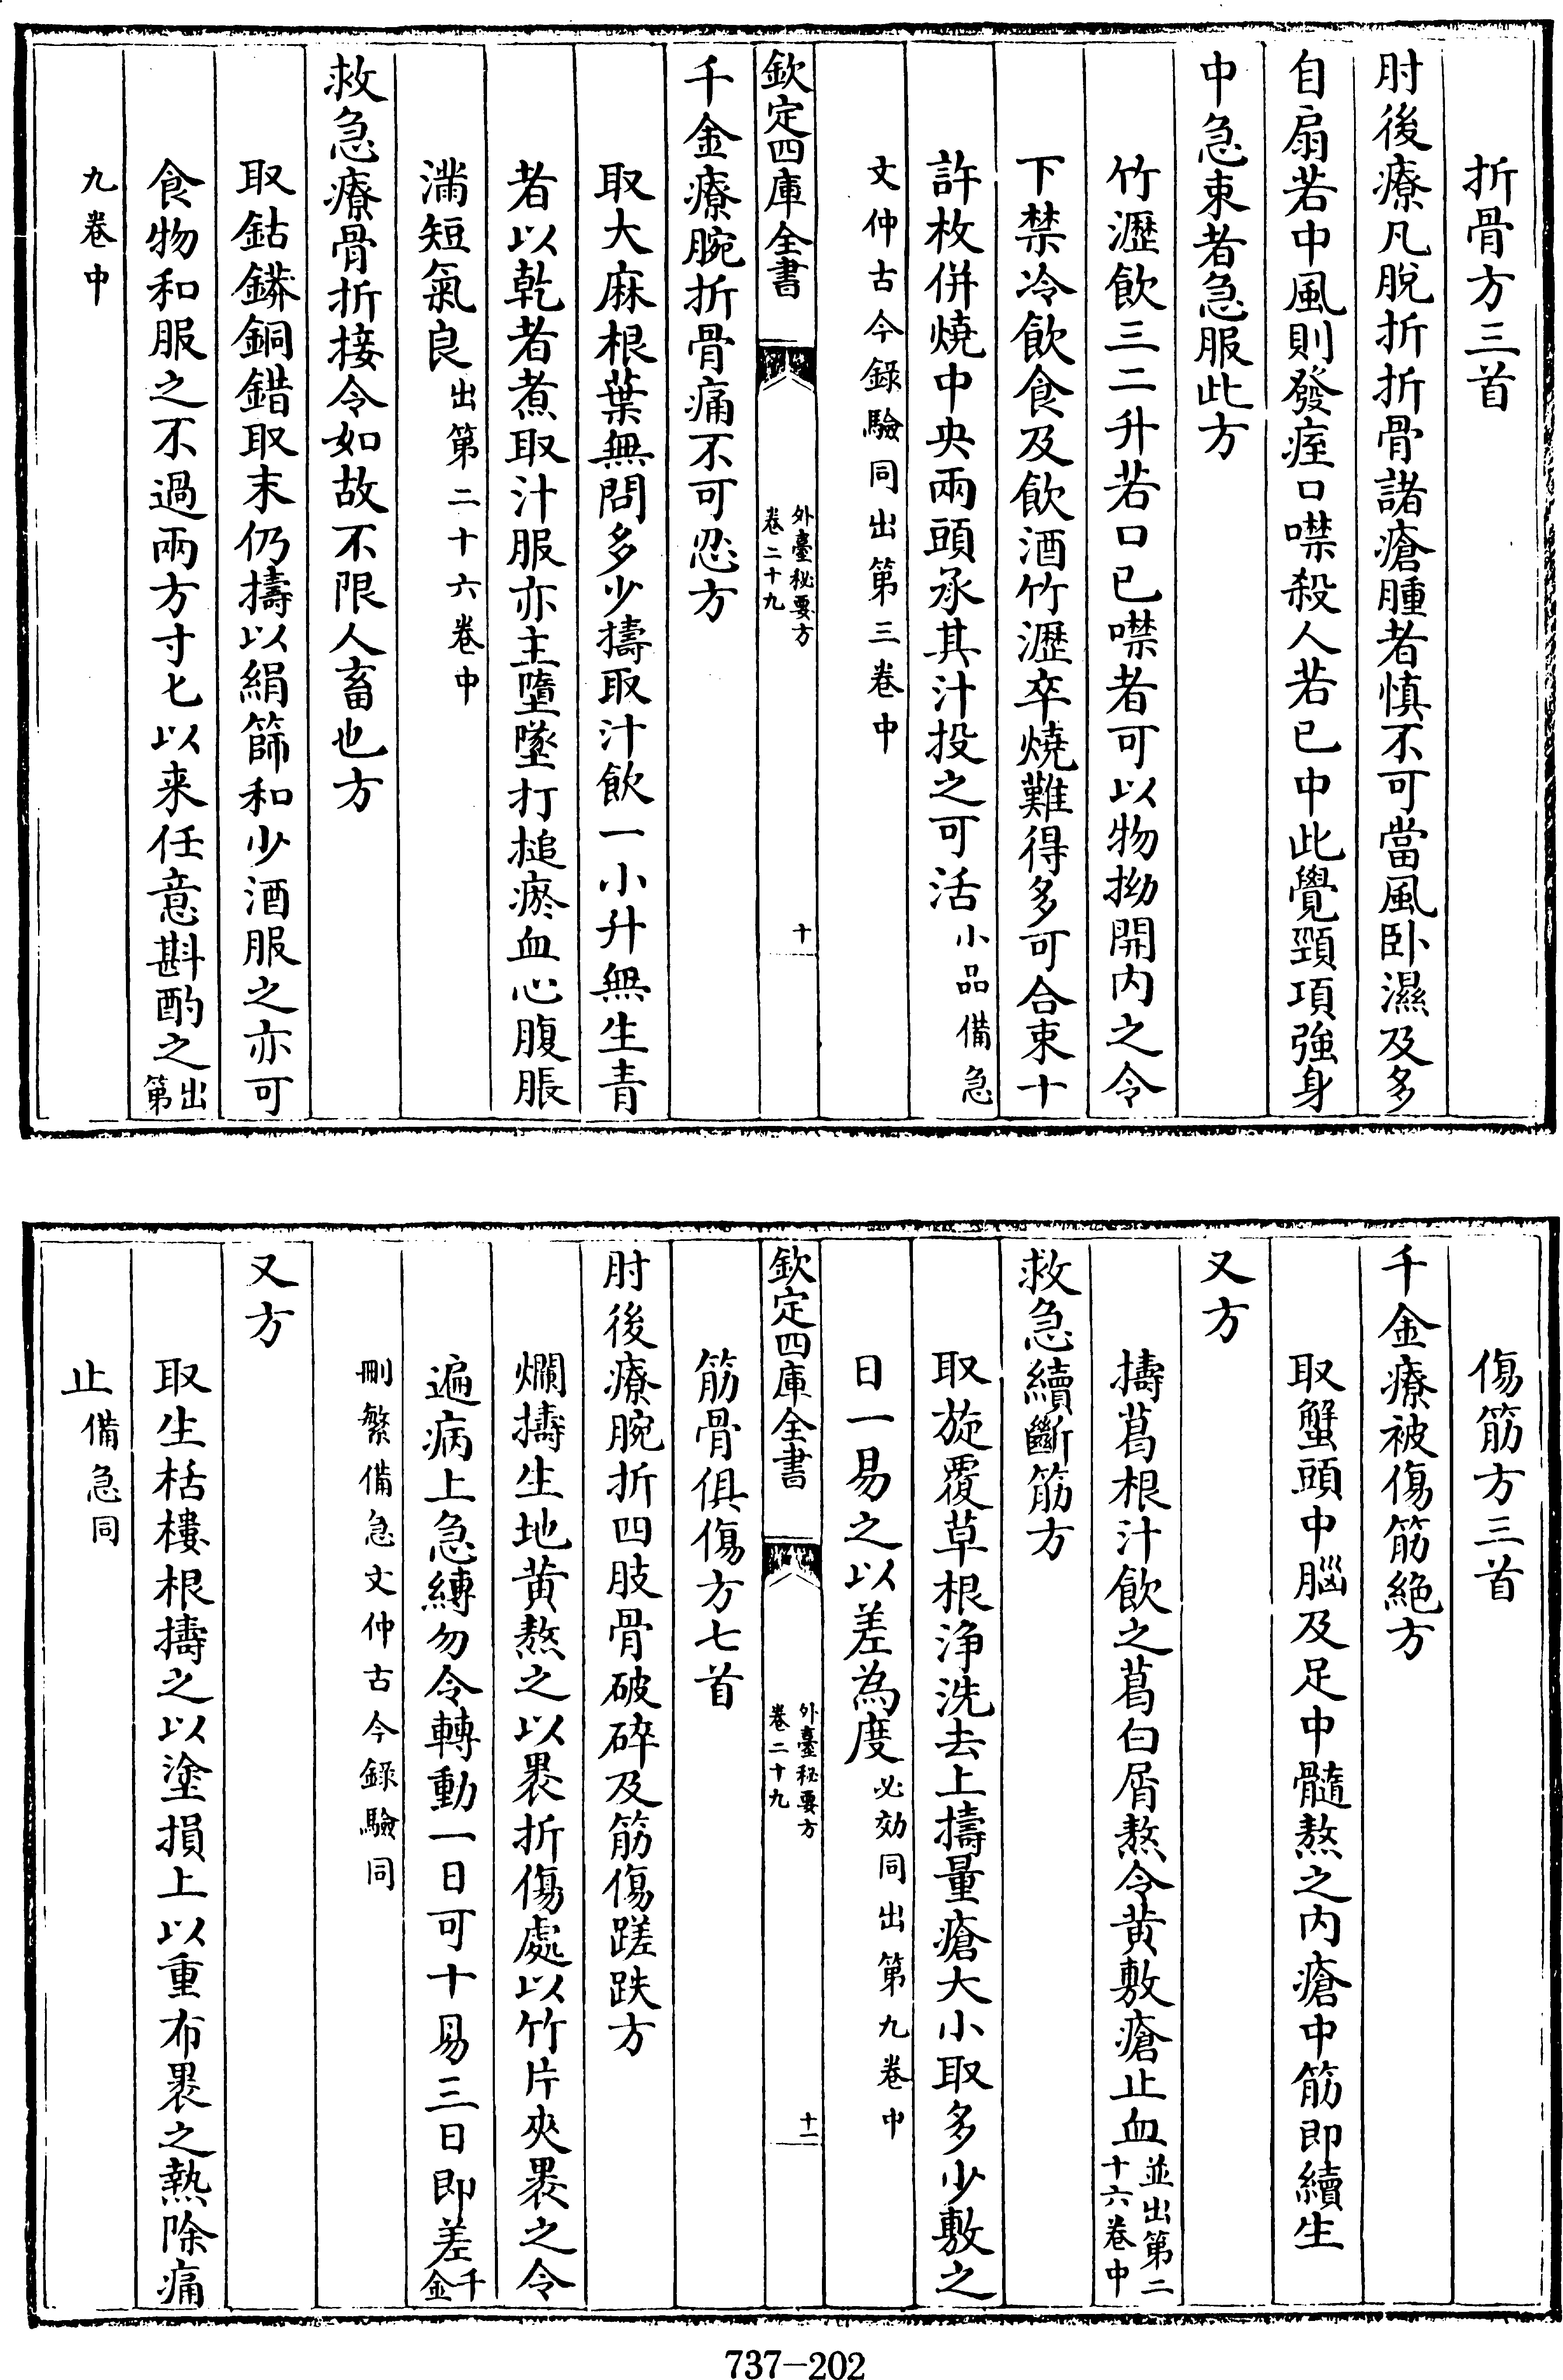 折骨方三首
肘後療凡脱折折骨諸瘡腫者慎不可當風卧濕及多
自扇若中風則發痓口噤殺人若已中此覺頸項強身
中急束者急服此方
竹瀝飲三二升若口已噤者可以物拗開内之令
下禁冷飲食及飲酒竹瀝卒燒難得多可合束十
許枚併燒中央兩頭承其汁投之可活小品備急
文仲古今錄驗同出第三卷中
欽定四庫全書
外臺秘要方
卷二十九
十
千金療腕折骨痛不可忍方
取大麻根葉無問多少擣取汁飲一小升無生青
者以乾者煮取汁服亦主墮墜打搥瘀血心腹脹
滿短氣良出第二十六卷中
救急療骨折接令如故不限人畜也方
取鈷鏻銅錯取末仍擣以絹篩和少酒服之亦可
食物和服之不過兩方寸匕以来任意斟酌之出第
九卷中
傷筋方三首
千金療被傷筋絶方
取蟹頭中腦及足中髓熬之内瘡中筋即續生
又方
擣葛根汁飲之葛白屑熬令黄敷瘡止血並出第二十六卷中
救急續斷筋方
取旋覆草根浄洗去上擣量瘡大小取多少敷之
日一易之以差為度必効同出第九卷中
欽定四庫全書
外臺秘要方
卷二十九
十一
筋骨俱傷方七首
肘後療腕折四肢骨破碎及筋傷蹉跌方
爛擣生地黄熬之以裹折傷處以竹片夾裹之令
遍病上急縳勿令轉動一日可十易三日即差千金
刪繁備急文仲古今錄驗同
又方
取生栝樓根擣之以塗損上以重布裹之熱除痛
止備急同
737-202